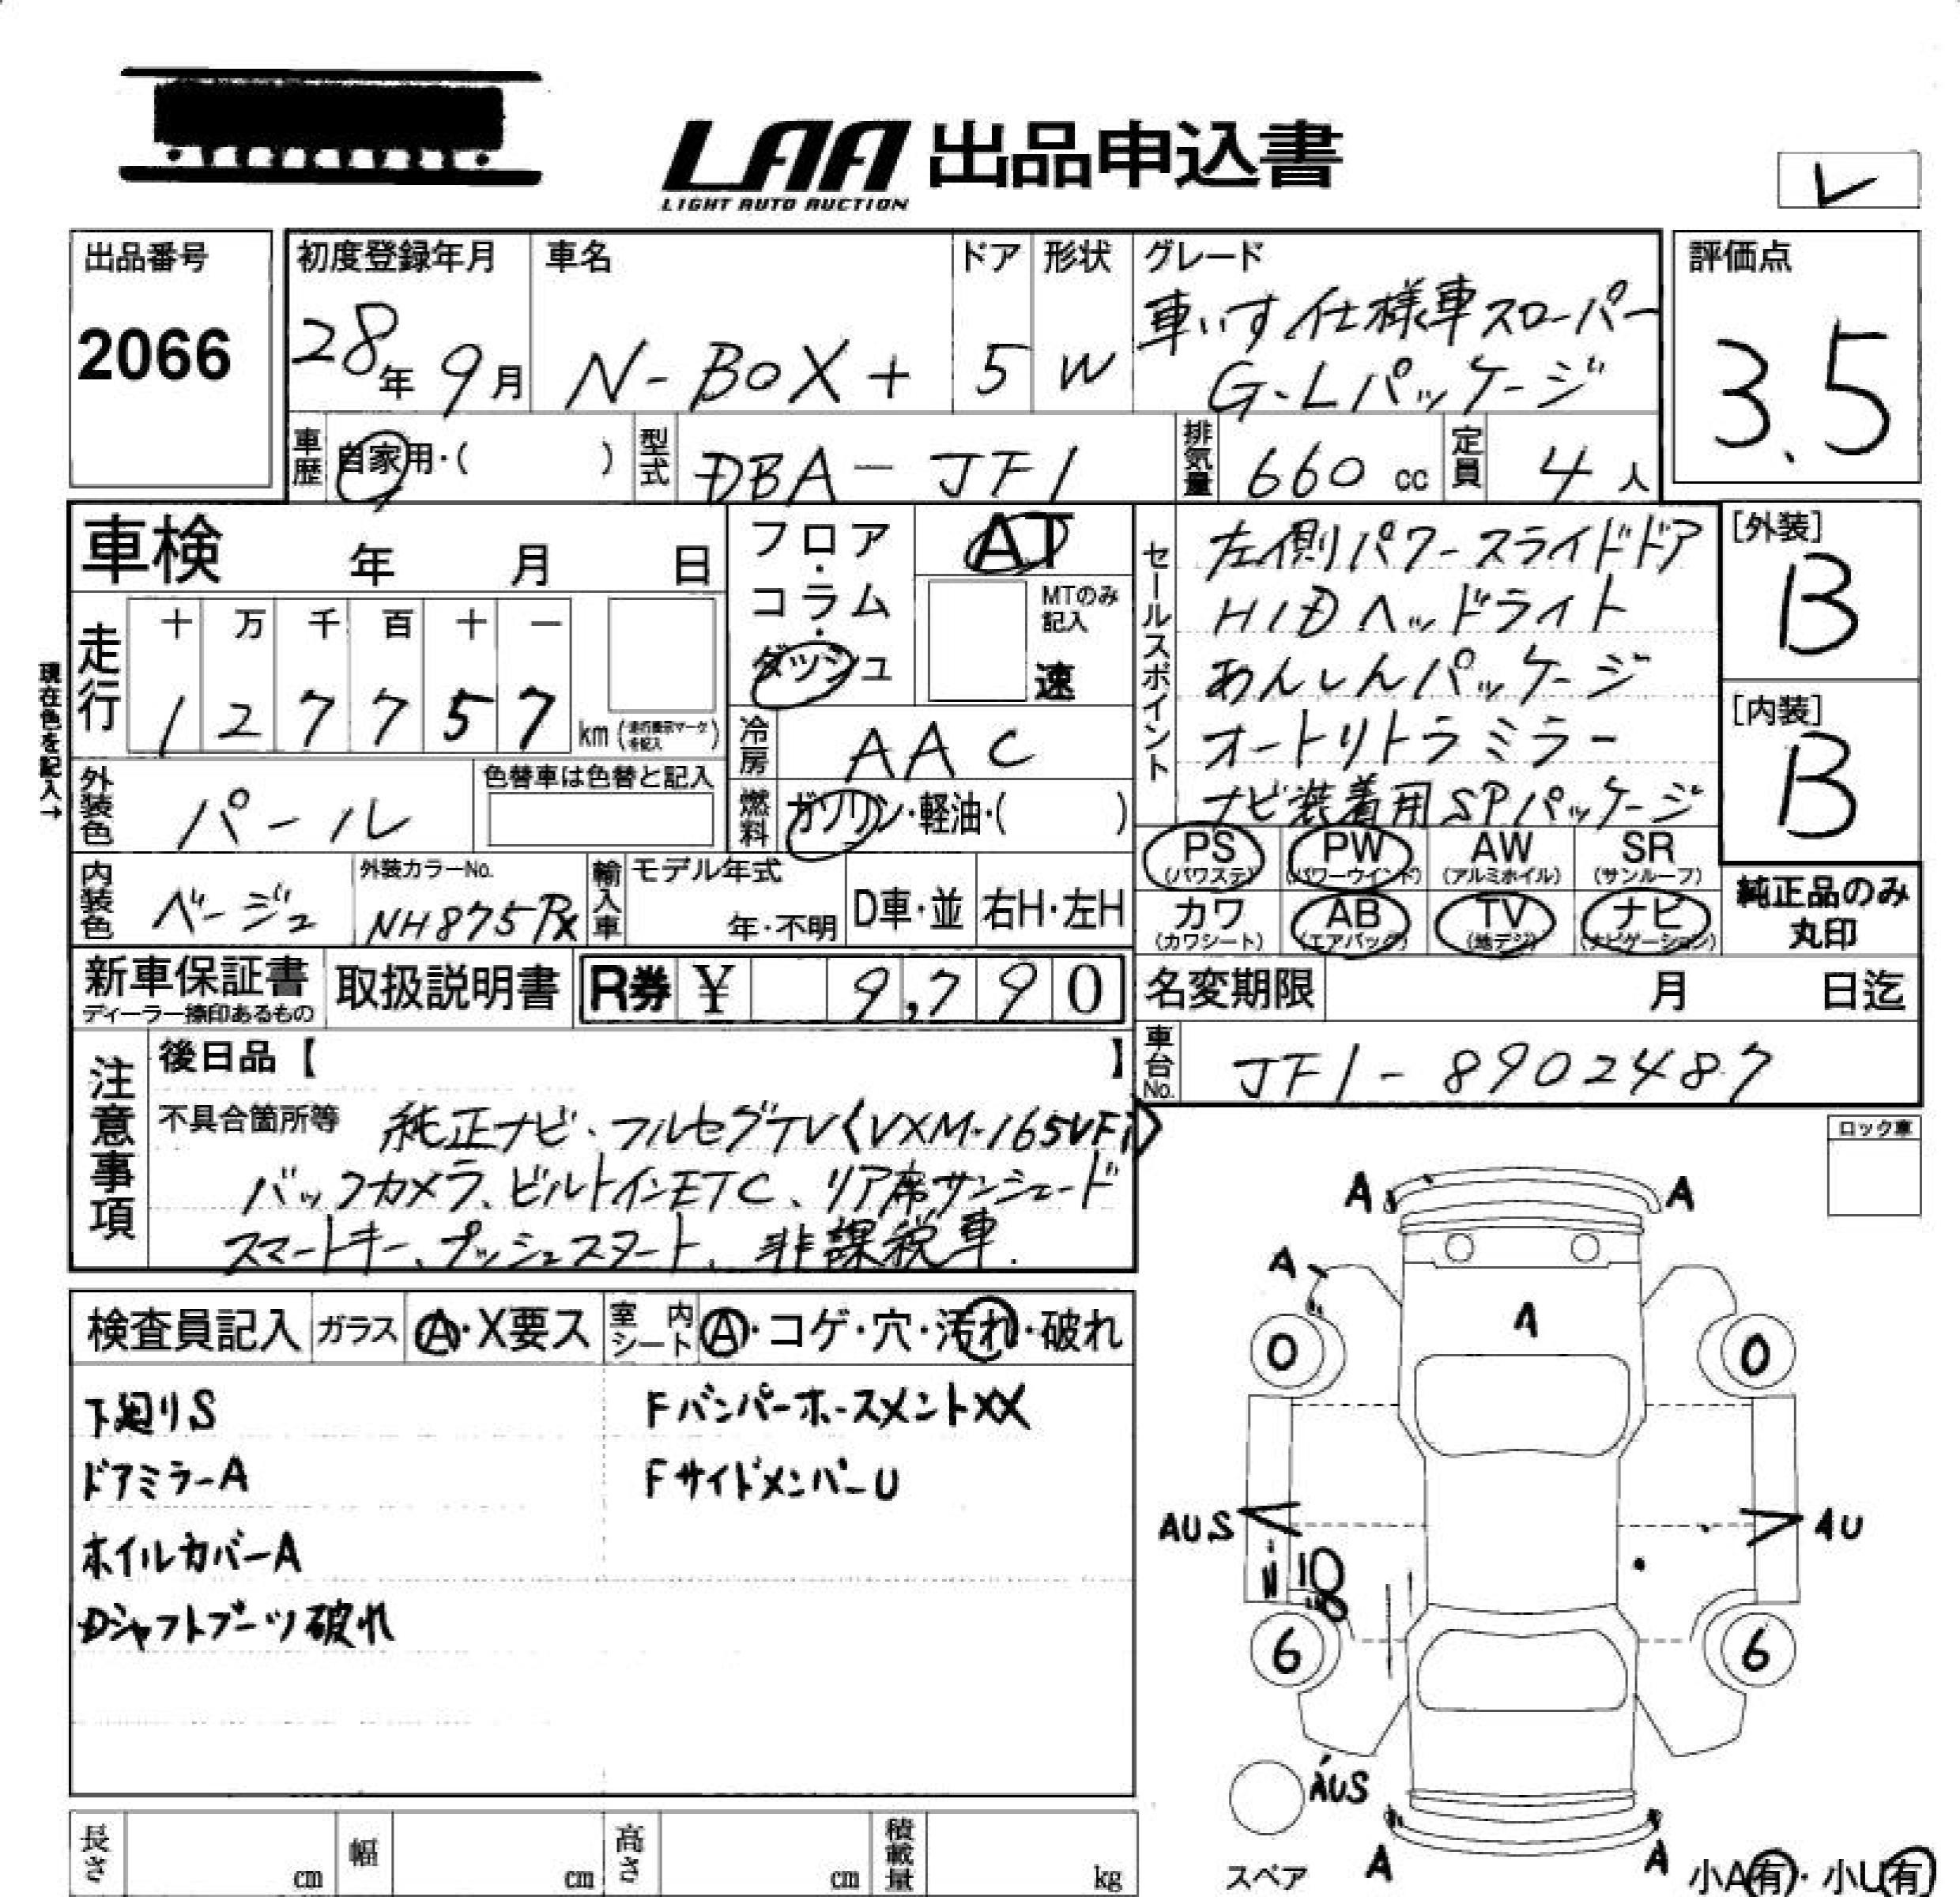 LAA 出品申込書
LIGHT AUTO AUCTION
レ
出品番号
2066
初度登録年月
28年 9月
車名
N-BOX+
ドア
5
形状
W
グレード
車いす仕様車スローパー
G・Lパッケージ
評価点
3.5
車歴 自家用・( )
型式 DBA-JF1
排気量 660 cc
定員 4 人
車検 年 月 日
走行 十 万 千 百 十 一
1 2 7 7 5 7 km (走行表示マークを記入)
現在色を記入→
フロア・コラム・ダッシュ
AT
MTのみ記入
速
冷房 AAC
燃料 ガソリン・軽油・( )
外装色 パール
色替車は色替と記入
内装色 ベージュ
外装カラーNo.
NH875Px
輸入車
モデル年式
年・不明
D車・並
右H・左H
セールスポイント
左側パワースライドドア
HIDヘッドライト
あんしんパッケージ
オートリトラミラー
ナビ装着用SPパッケージ
[外装]
B
[内装]
B
PS (パワステ) PW (パワーウインド) AW (アルミホイル) SR (サンルーフ)
カワ (カワシート) AB (エアバッグ) TV (地デジ) ナビ (ナビゲーション)
純正品のみ
丸印
新車保証書
ディーラー捺印あるもの
取扱説明書
R券 ¥ 9,790
名変期限 月 日迄
車台No. JF1-8902487
注意事項
後日品【 】
不具合箇所等 純正ナビ・フルセグTV<VXM-165VFi>
バックカメラ、ビルトインETC、リア席サンシェード
スマートキー、プッシュスタート、非課税車.
ロック車
検査員記入 ガラス A・X要ス 室内シート A・コゲ・穴・汚れ・破れ
下廻りS
ドアミラーA
ホイルカバーA
Dシャフトブーツ破れ
FバンパーホースメントXX
FサイドメンバーU
A A
A
A
0 0
AUS AU
6 6
AUS
A A
スペア
小A有・小U有
長さ cm 幅 cm 高さ cm 積載量 kg